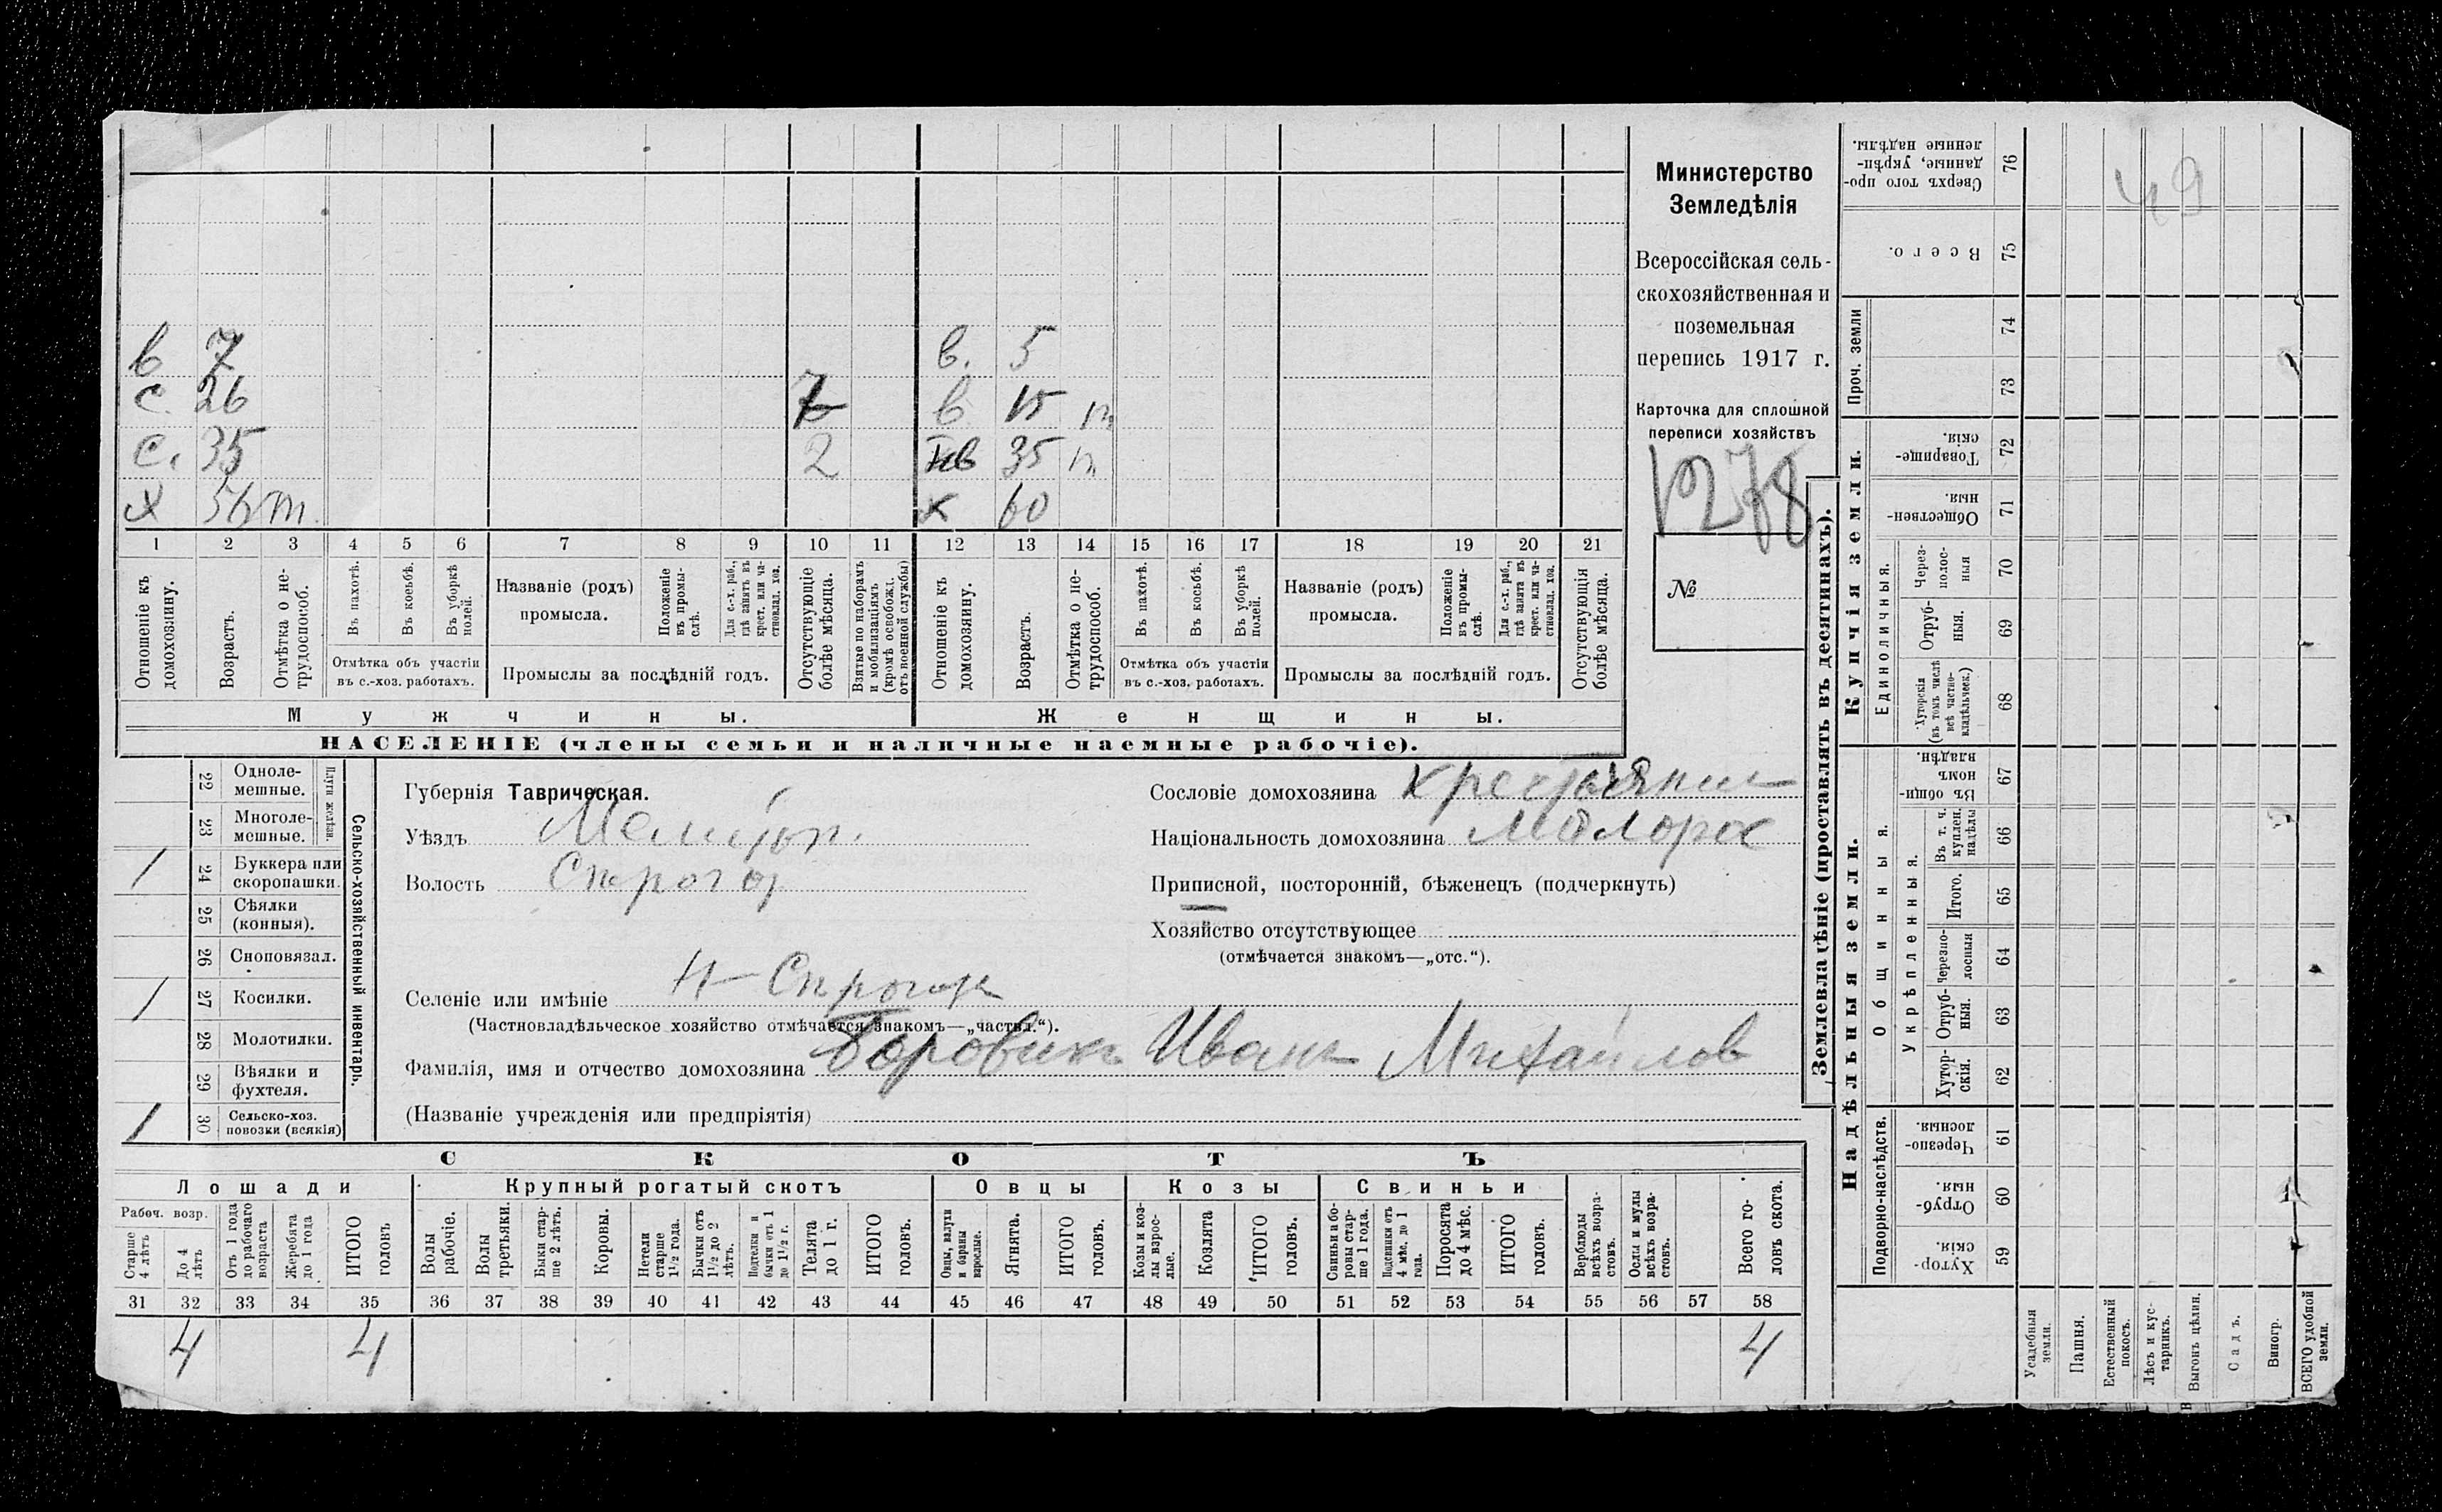 в 7 в. 5
с. 26 7 в 15 п
с. 35 2 35 п
х 56 т. х 60
1 2 3 4 5 6 7 8 9 10 11 12 13 14 15 16 17 18 19 20 21
Отношеніе къ домохозяину.
Возрастъ.
Отмѣтка о не-трудоспособ.
Въ пахотѣ.
Въ косьбѣ.
Въ уборкѣ полей.
Отмѣтка объ участіи
въ с.-хоз. работахъ.
Названіе (родъ)
промысла.
Положеніе въ промы-слѣ.
Для с.-х. раб., гдѣ занятъ въ крест. или ча-стновлад. хоз.
Промыслы за послѣдній годъ.
Отсутствующіе болѣе мѣсяца.
Взятые по наборамъ и мобилизаціямъ (кромѣ освобожд. отъ военной службы)
Отношеніе къ домохозяину.
Возрастъ.
Отмѣтка о не-трудоспособ.
Въ пахотѣ.
Въ косьбѣ.
Въ уборкѣ полей.
Отмѣтка объ участіи
въ с.-хоз. работахъ.
Названіе (родъ)
промысла.
Положеніе въ промы-слѣ.
Для с.-х. раб., гдѣ занята въ крест. или ча-стновлад. хоз.
Промыслы за послѣдній годъ.
Отсутствующія болѣе мѣсяца.
Мужчины.
Женщины.
НАСЕЛЕНІЕ (члены семьи и наличные наемные рабочіе).
Министерство
Земледѣлія
Всероссійская сель-
скохозяйственная и
поземельная
перепись 1917 г.
Карточка для сплошной
переписи хозяйствъ
1278
№
22 Одноле-мешные.
23 Многоле-мешные.
Плуги желѣзн.
/ 24 Буккера или скоропашки.
25 Сѣялки (конныя).
26 Сноповязал.
/ 27 Косилки.
28 Молотилки.
29 Вѣялки и фухтеля.
/ 30 Сельско-хоз. повозки (всякія)
Сельско-хозяйственный инвентарь.
Губернія Таврическая.
Уѣздъ Мелитоп.
Волость
Селеніе или имѣніе
(Частновладѣльческое хозяйство отмѣчается знакомъ—„частвл.“).
Фамилія, имя и отчество домохозяина Боровикъ Иванъ Михайлов
(Названіе учрежденія или предпріятія)
Сословіе домохозяина крестьянин
Національность домохозяина малорос
Приписной, посторонній, бѣженецъ (подчеркнуть)
Хозяйство отсутствующее
(отмѣчается знакомъ—„отс.“).
СКОТЪ
Лошади
Крупный рогатый скотъ
Овцы
Козы
Свиньи
Рабоч. возр.
Старше 4 лѣтъ
До 4 лѣтъ
Отъ 1 года до рабочаго возраста
Жеребята до 1 года
ИТОГО головъ
Волы рабочіе.
Волы третьяки.
Быки стар-ше 2 лѣтъ.
Коровы.
Нетели старше 1½ года.
Бычки отъ 1½ до 2 лѣтъ.
Подтелки и бычки отъ 1 до 1½ г.
Телята до 1 г.
ИТОГО головъ.
Овцы, валухи и бараны взрослые.
Ягнята.
ИТОГО головъ.
Козы и коз-лы взрос-лые.
Козлята
ИТОГО головъ.
Свиньи и бо-ровы стар-ше 1 года.
Подсвинки отъ 4 мѣс. до 1 года.
Поросята до 4 мѣс.
ИТОГО головъ.
Верблюды всѣхъ возра-стовъ.
Ослы и мулы всѣхъ возра-стовъ.
Всего го-ловъ скота.
31 32 33 34 35 36 37 38 39 40 41 42 43 44 45 46 47 48 49 50 51 52 53 54 55 56 57 58
4 4 4
Землевладѣніе (проставлять въ десятинахъ).
49
Сверхъ того про-данные, укрѣп-ленные надѣлы. 76
Всего. 75
Проч. земли
74
73
Купчія земли.
Товарище-скія. 72
Обществен-ныя. 71
Единоличныя.
Через-полос-ныя 70
Отруб-ныя. 69
Хуторскія (въ томъ числѣ всѣ частно-владѣльческ.) 68
Надѣльныя земли.
Въ общи-номъ владѣн. 67
Общинныя.
Укрѣпленныя.
Въ т. ч. куплен. надѣлы 66
Итого. 65
Черезпо-лосныя 64
Отруб-ныя. 63
Хутор-скія. 62
Подворно-наслѣдств.
Черезпо-лосныя. 61
Отруб-ныя. 60
Хутор-скія. 59
Усадебныя земли.
Пашня.
Естественный покосъ.
Лѣсъ и кус-тарникъ.
Выгонъ цѣлин.
Садъ.
Виногр.
ВСЕГО удобной земли.